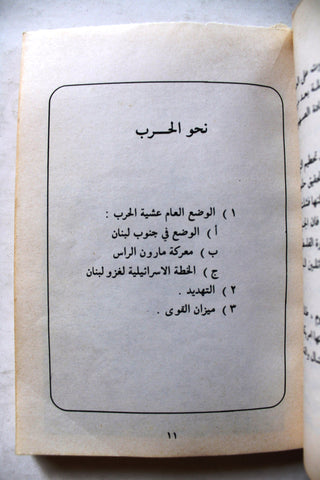 نحو الحـــرب
١ ) الوضع العام عشية الحرب :
أ ) الوضع في جنوب لبنان
ب ) معركة مارون الراس
ج ) الخطة الاسرائيلية لغزو لبنان
٢ ) التهديد .
٣ ) ميزان القوى .
١١